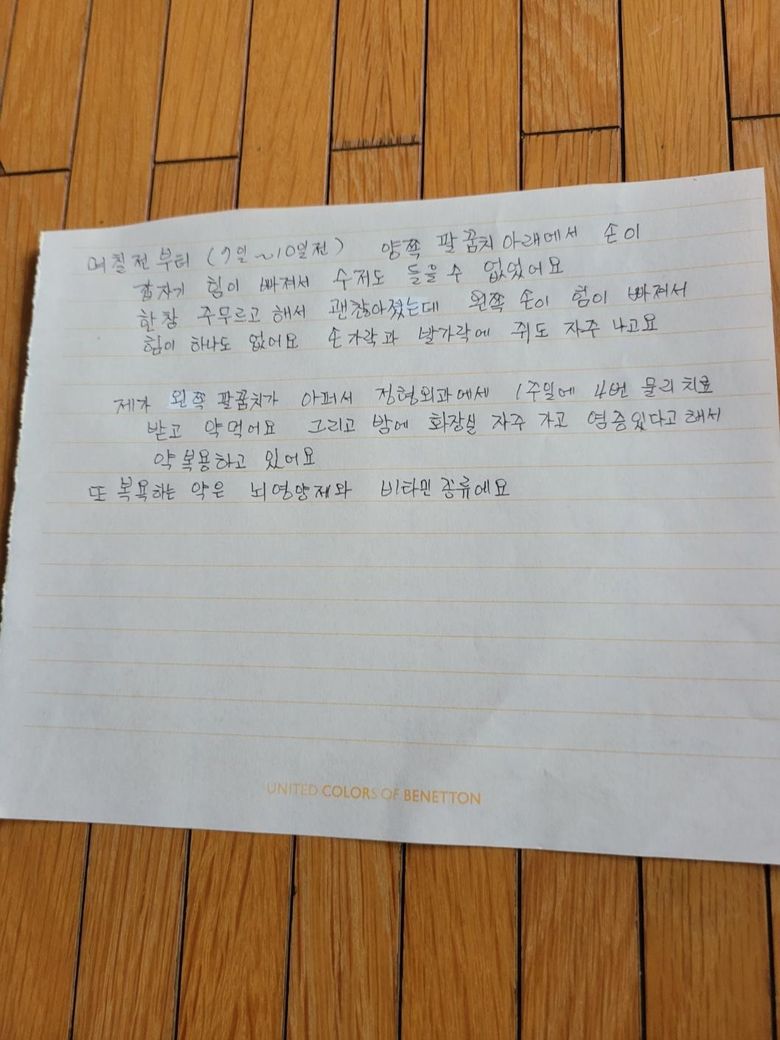 며칠전부터 (7일~10일전) 양쪽 팔꿈치아래에서 손이
갑자기 힘이 빠져서 수저도 들을수 없었어요
한참 주무르고 해서 괜찮아졌는데 왼쪽 손이 힘이 빠져서
힘이 하나도 없어요 손가락과 발가락에 쥐도 자주 나고요
제가 왼쪽 팔꿈치가 아퍼서 정형외과에세 1주일에 4번 물리치료
받고 약먹어요 그리고 밤에 화장실 자주 가고 염증있다고해서
약복용하고 있어요
또 복욕하는 약은 뇌영양제와 비타민종류에요
UNITED COLORS OF BENETTON